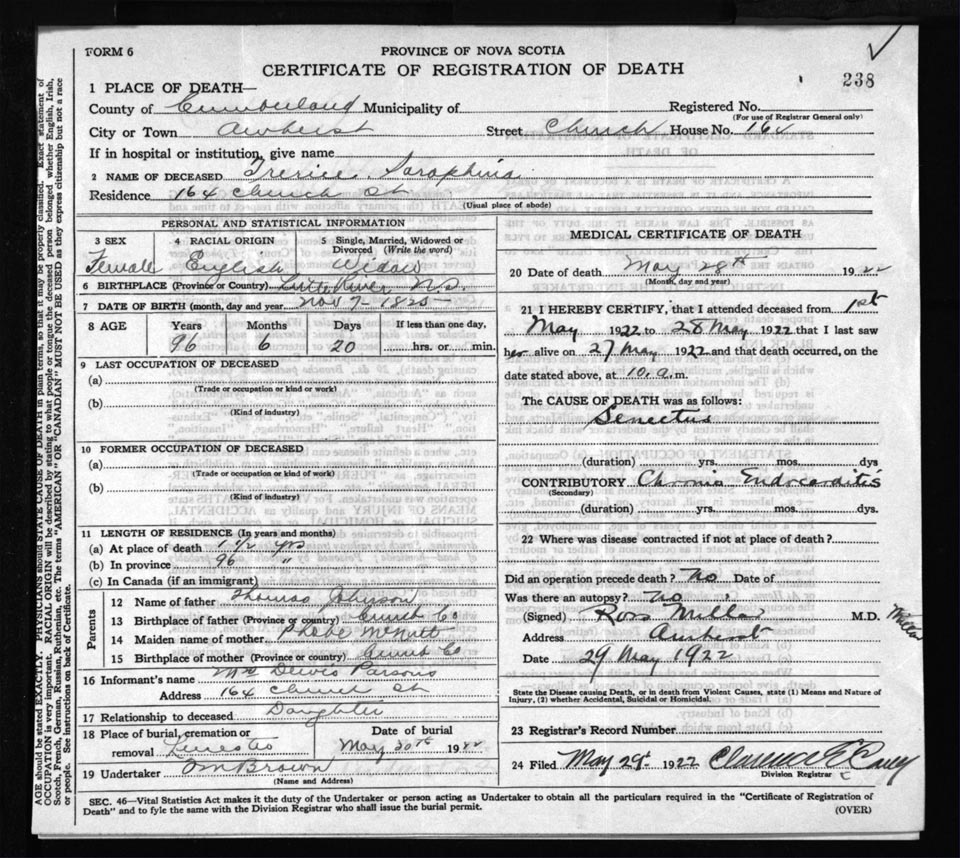 238
FORM 6
PROVINCE OF NOVA SCOTIA
CERTIFICATE OF REGISTRATION OF DEATH
1 PLACE OF DEATH—
County of Cumberland Municipality of Registered No.
(For use of Registrar General only)
City or Town Amherst Street Church House No. 164
If in hospital or institution, give name
2 NAME OF DECEASED Saraphina
Residence 164 Church St
(Usual place of abode)
PERSONAL AND STATISTICAL INFORMATION
3 SEX 4 RACIAL ORIGIN 5 Single, Married, Widowed or Divorced (Write the word)
Female English Widow
6 BIRTHPLACE (Province or Country) Little River N.S.
7 DATE OF BIRTH (month, day and year) Nov 7 - 1825
8 AGE Years Months Days If less than one day,
96 6 20 hrs. or min.
9 LAST OCCUPATION OF DECEASED
(a)
(Trade or occupation or kind of work)
(b)
(Kind of industry)
10 FORMER OCCUPATION OF DECEASED
(a)
(Trade or occupation or kind of work)
(b)
(Kind of industry)
11 LENGTH OF RESIDENCE (In years and months)
(a) At place of death 1 1/2 yrs
(b) In province 96 "
(c) In Canada (if an immigrant)
Parents
12 Name of father Thomas Johnson
13 Birthplace of father (Province or country) Cumb Co
14 Maiden name of mother Phebe McNutt
15 Birthplace of mother (Province or country) Cumb Co
16 Informant's name Mrs Parsons
Address 164 Church St
17 Relationship to deceased Daughter
18 Place of burial, cremation or removal Date of burial
May 30th 1922
19 Undertaker Brown
(Name and Address)
MEDICAL CERTIFICATE OF DEATH
20 Date of death May 28th 1922
(Month, day and year)
21 I HEREBY CERTIFY, that I attended deceased from 1st
May 1922 to 28 May 1922 that I last saw
her alive on 27 May 1922 and that death occurred, on the
date stated above, at 10 a.m.
The CAUSE OF DEATH was as follows:
Senectus
(duration) yrs. mos. dys
CONTRIBUTORY Chronic Endocarditis
(Secondary)
(duration) yrs. mos. dys.
22 Where was disease contracted if not at place of death?
Did an operation precede death? No Date of
Was there an autopsy? no
(Signed) Ross Millar M.D. Millar
Address Amherst
Date 29 May 1922
State the Disease causing Death, or in death from Violent Causes, state (1) Means and Nature of
Injury, (2) whether Accidental, Suicidal or Homicidal.
23 Registrar's Record Number
24 Filed May 29th 1922
Division Registrar
SEC. 46—Vital Statistics Act makes it the duty of the Undertaker or person acting as Undertaker to obtain all the particulars required in the "Certificate of Registration of
Death" and to fyle the same with the Division Registrar who shall issue the burial permit. (OVER)
AGE should be stated EXACTLY. PHYSICIANS should STATE CAUSE OF DEATH in plain terms, so that it may be properly classified. Exact statement of
OCCUPATION is very important. RACIAL ORIGIN will be described by stating to what people or tongue the deceased person belonged whether English, Irish,
Scotch, French, German, Russian, Ruthenian, etc. The terms "AMERICAN" OR "CANADIAN" MUST NOT BE USED as they express citizenship but not a race
or people. See instructions on back of Certificate.